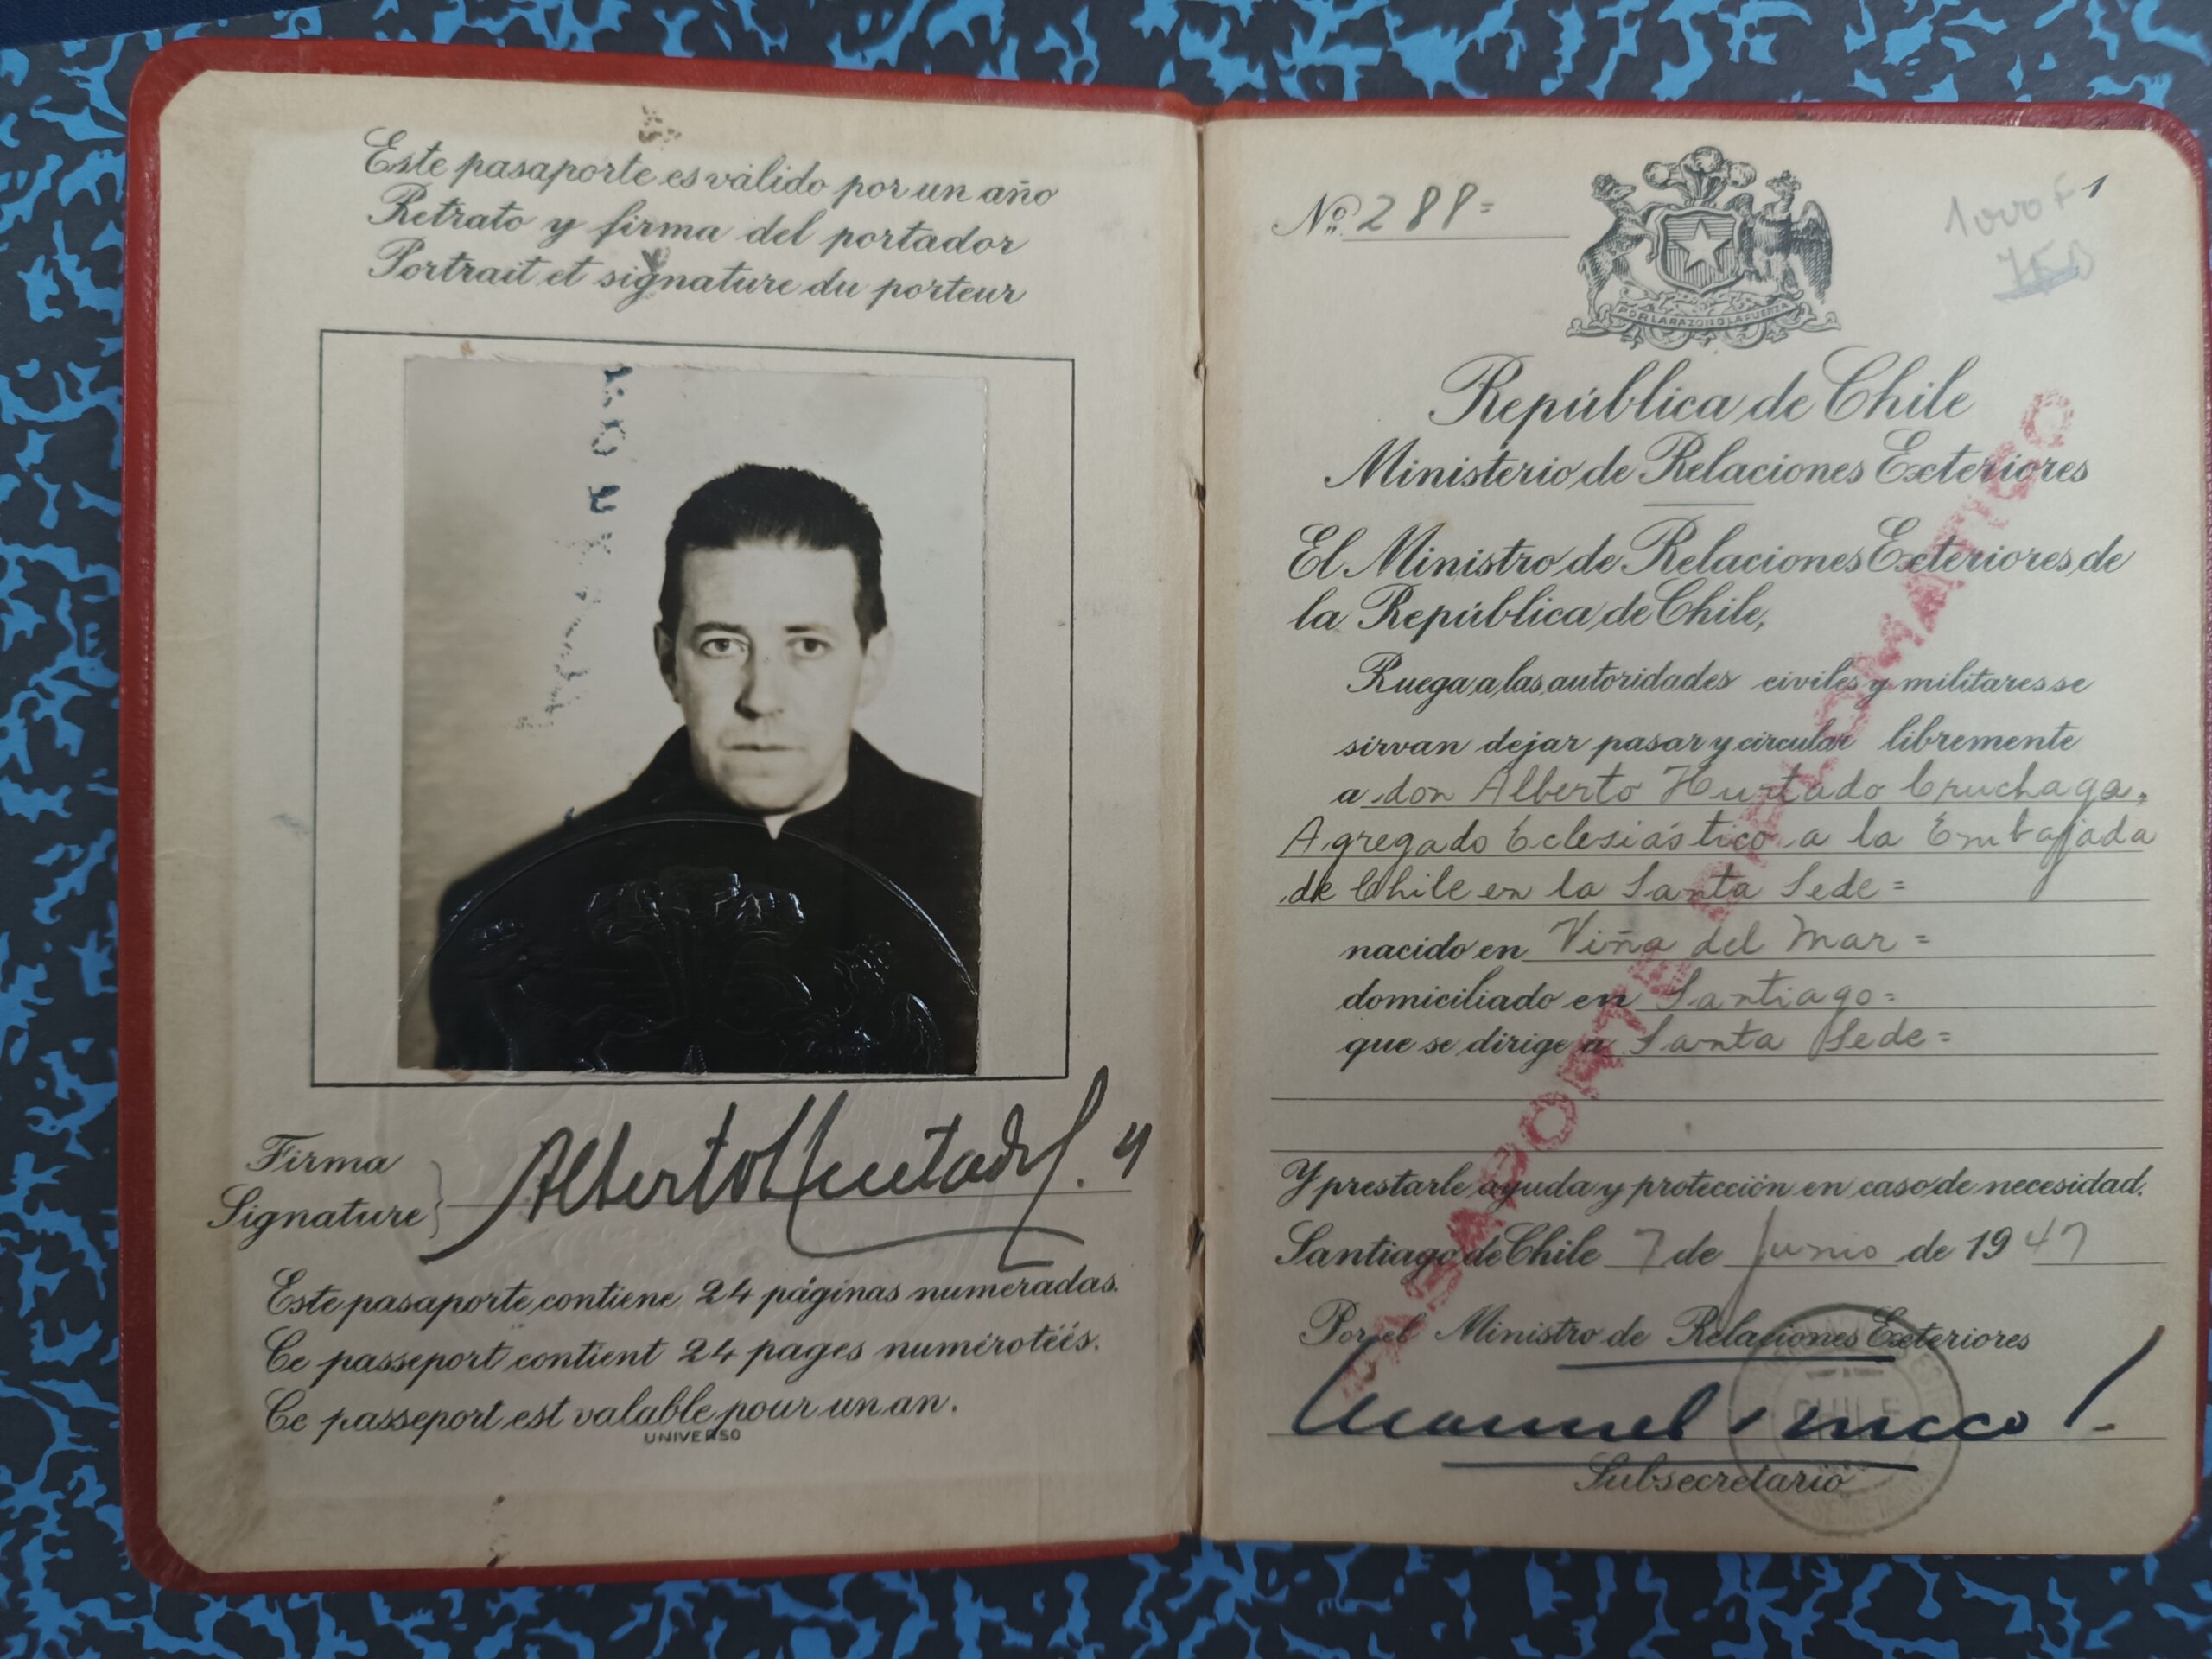 Este pasaporte es válido por un año
Retrato y firma del portador
Portrait et signature du porteur
Firma
Signature
Alberto Hurtado
Este pasaporte contiene 24 páginas numeradas.
Ce passeport contient 24 pages numérotéés.
Ce passeport est valable pour un an.
UNIVERSO
1
No. 288=
POR LA RAZON O LA FUERZA
República de Chile
Ministerio de Relaciones Exteriores
El Ministro de Relaciones Exteriores de
la República de Chile,
Ruega a las autoridades civiles y militares se
sirvan dejar pasar y circular libremente
a don Alberto Hurtado Cruchaga,
Agregado Eclesiástico a la Embajada
de Chile en la Santa Sede=
nacido en Viña del Mar=
domiciliado en Santiago=
que se dirige a Santa Sede=
Y prestarle ayuda y protección en caso de necesidad.
Santiago de Chile 7 de Junio de 1947
Por el Ministro de Relaciones Exteriores
Manuel
Subsecretario
PASAPORTE DIPLOMATICO
CHILE